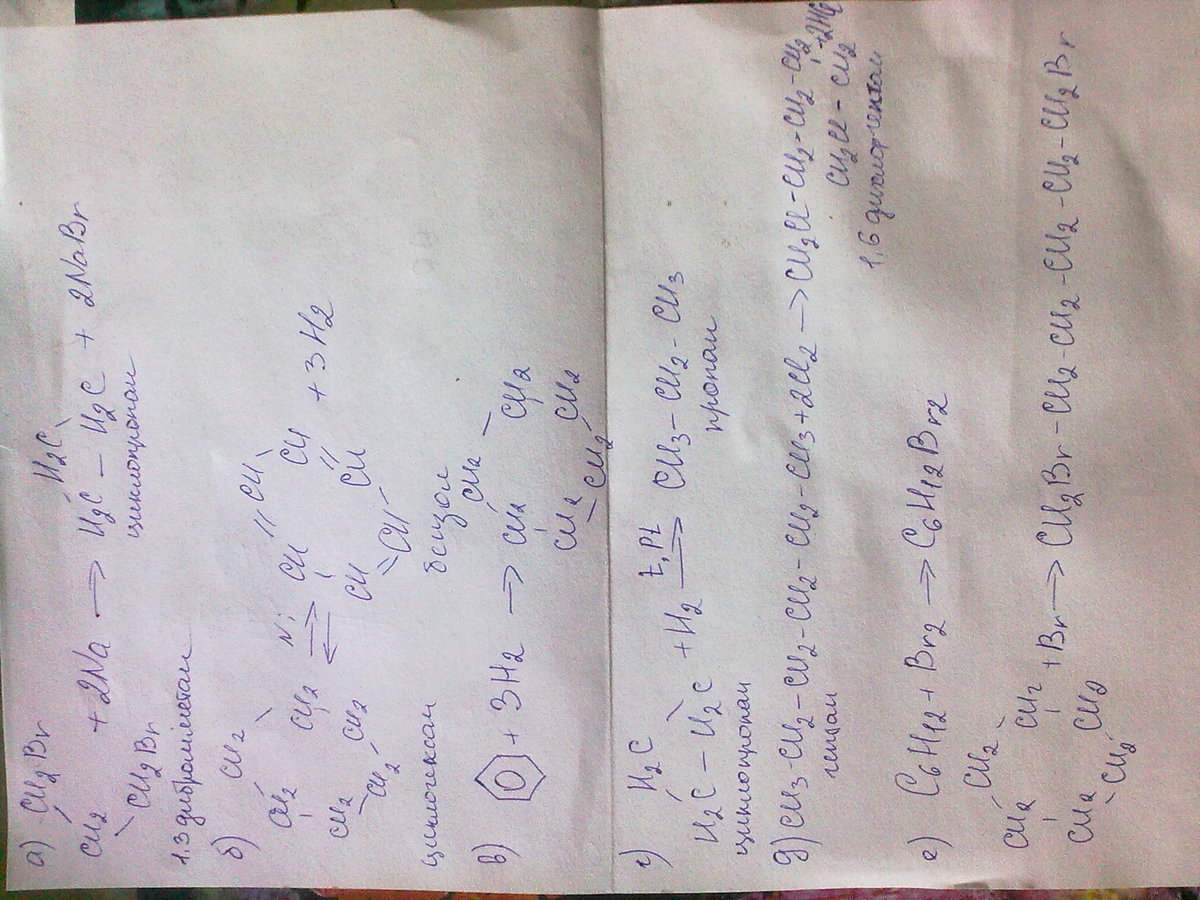 а) CH2Br
CH2 + 2Na → H2C – H2C + 2NaBr
H2C
CH2Br
циклопропан
1.3 дибромметан
б) CH2 CH2 Ni CH CH
CH2 ⇄ CH + 3H2
CH2 CH2 CH CH
CH2 CH
циклогексан бензол
в) + 3H2 → CH2 CH2 CH2
CH2 CH2 CH2
г) H2C
H2C – H2C + H2 t, Pt → CH3 – CH2 – CH3
циклопропан пропан
д) CH3-CH2-CH2-CH2-CH2-CH2-CH3+2Cl2 → CH2Cl-CH2-CH2-CH2-CH2
гептан CH2Cl – CH2
1,6 дихлор гептан
е) C6H12 + Br2 → C6H12Br2
CH2
CH2 CH2 + Br → CH2Br-CH2-CH2-CH2-CH2-CH2Br
CH2 CH2
CH2